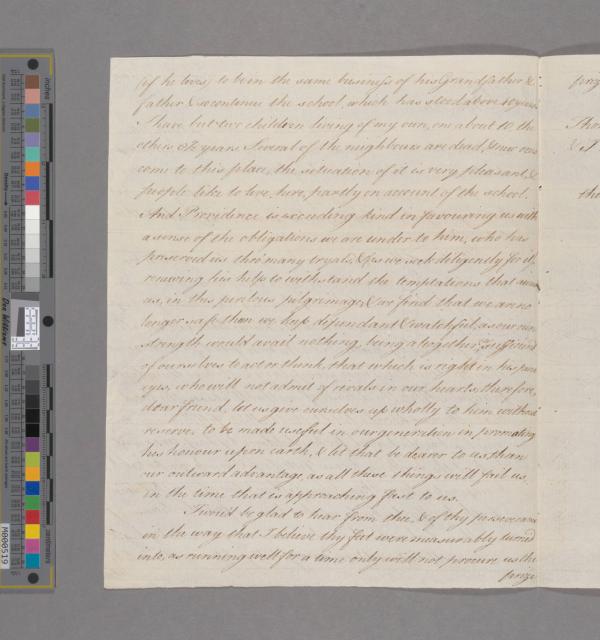 (if he lives) to be in the same business of his Grandfather &
father & so continue the school, which has stood above 40 years
I have but two children living of my own, one about 10, the
other 0½ years Several of the neighbours are dead, & new ones
come to this place, the situation of it is very pleasant, &
people like to live here, partly on account of the school.
And Providence is exceeding kind in favouring us with
a sense of the obligations we are under to him, who has
preserved us thro' many tryals, & as we seek deligently for the
renewing his help to withstand the temptations that
us, in this perilous pilgrimage, & we find that we are no
longer safe than we kept dependant & watchful, as our own
strength would avail nothing, being altogether
of ourselves to act or think, that which is right in his pure
eyes, who will not admit of rivals in our hearts, therefore,
dear friend, let us give ourselves up wholly to him without
reserve, to be made useful in our generation in promoting
his honour upon earth, & let that be dearer to us than
our outward advantage, as all these things will fail us
in the time that is approaching fast to us.
I would be glad to hear from thee, & of thy perseverance
in the way that I believe thy feet were measurably turned
into, as running well for a time only will not procure us the
prize
prize
& I
the
inches
centimetres
M000519